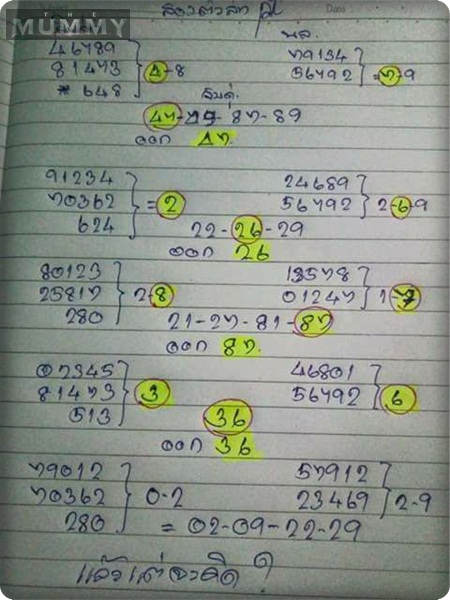 THE
MUMMY
สองตัวล่าง
46789
81473
* 648
4-8
79134
56792
= 7-9
47-49-87-89
ออก 47.
91234
70362
624
= 2
24689
56792
2-6-9
22-26-29
ออก 26
80123
25817
280
2-8
13578
01247
1-7
21-27-81-87
ออก 87.
02345
81473
513
3
46801
56792
6
36
ออก 36
79012
70362
280
0-2
57912
23469
2-9
= 02-09-22-29
แล้วแต่จะคิด